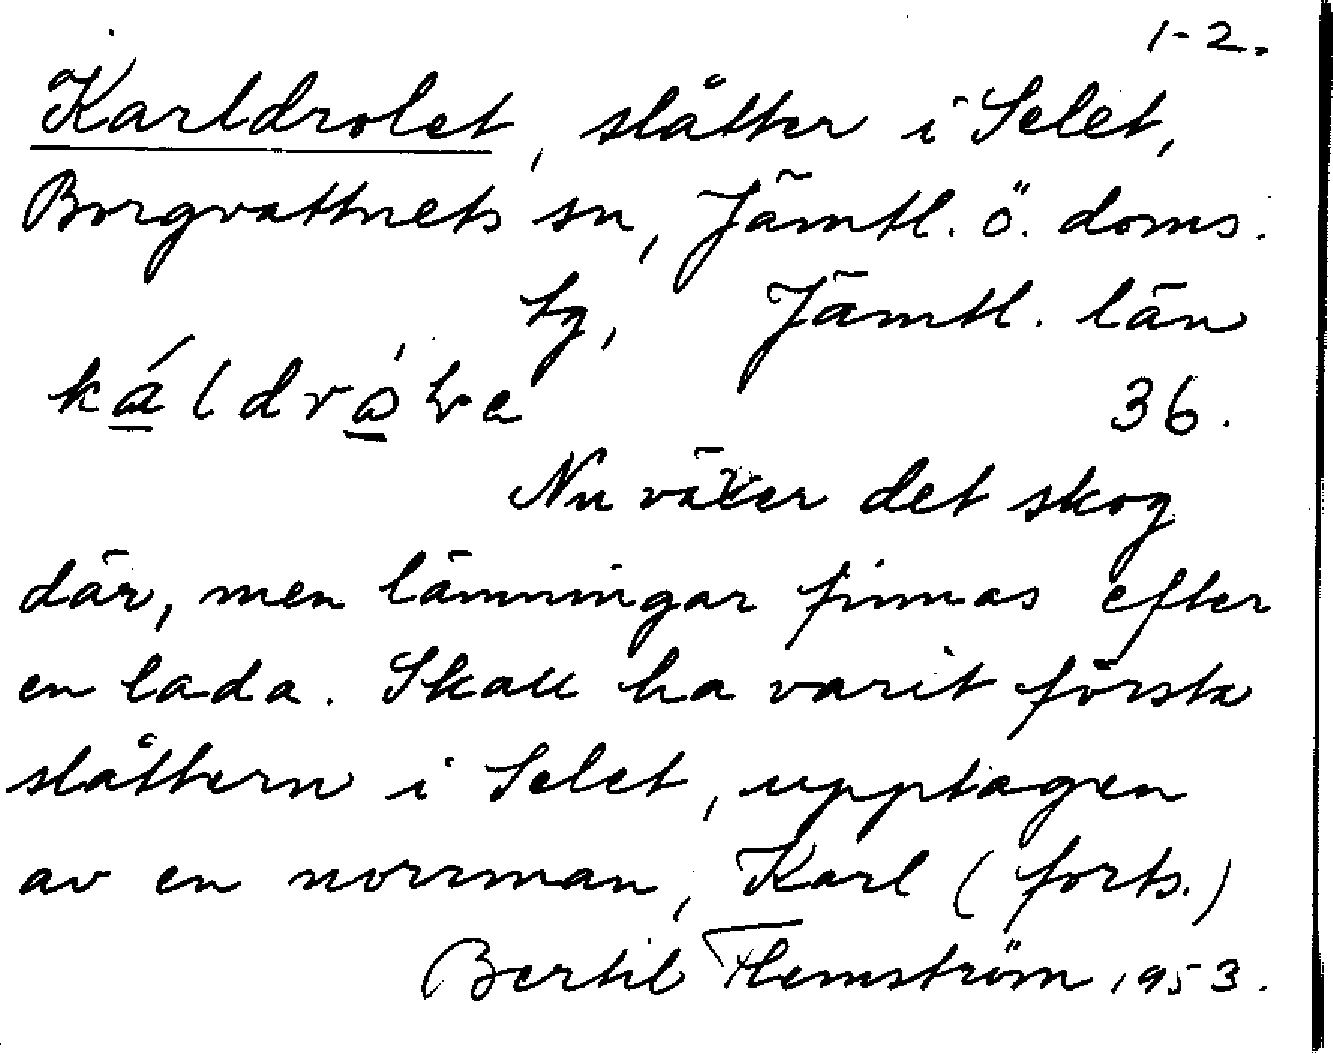 1-2.
Karldrolet, slåtter i Selet,
Borgvattnets sn, Jämtl. ö. doms.
tg, Jämtl. län
36.
Nu växer det skog
där, men lämningar finnas efter
en lada. Skall ha varit första
slåttern i Selet, upptagen
av en norrman, Karl (forts.)
Bertil Flemström 1953.